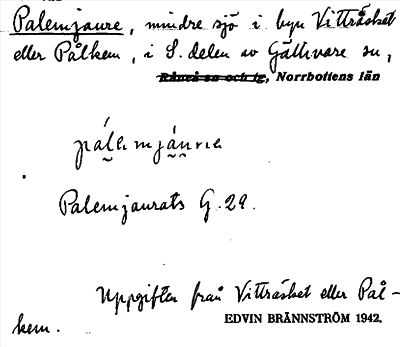 Palemjaure, mindre sjö i byn Vitträsket
eller Pålkem, i S. delen av Gällivare sn,
Råneå sn och tg, Norrbottens län
Palemjaurats G. 29.
Uppgifter från Vitträsket eller Pål-
kem.
EDVIN BRÄNNSTRÖM 1942.